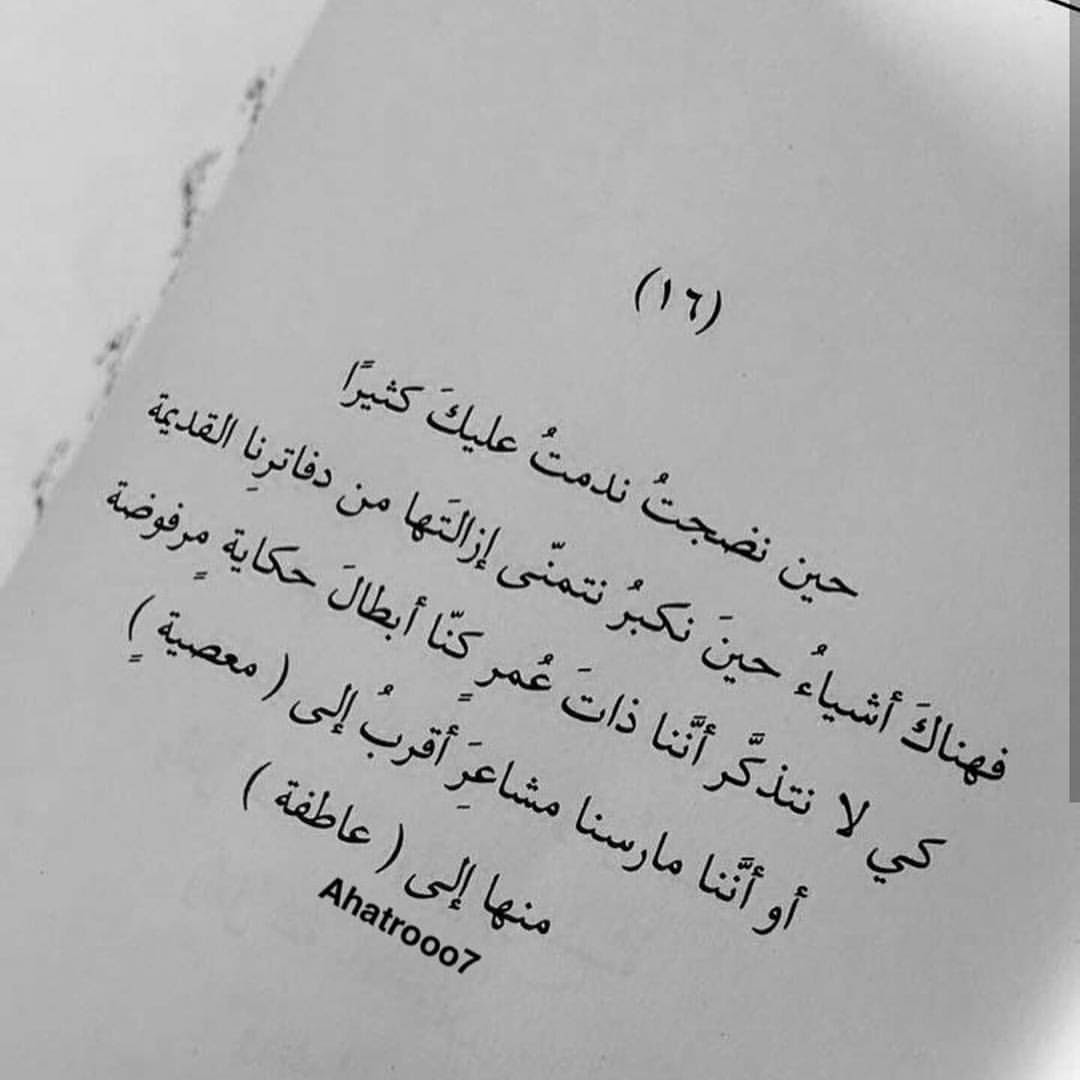 (١٦)
حين نضجتُ ندمتُ عليكَ كثيرًا
فهناكَ أشياءُ حينَ نكبرُ نتمنّى إزالتَها من دفاترِنا القديمة
كي لا نتذكَّر أنَّنا ذاتَ عُمرٍ كنّا أبطالَ حكايةٍ مرفوضة
أو أنَّنا مارسنا مشاعرَ أقربُ إلى ( معصيةٍ )
منها إلى ( عاطفة )
Ahatrooo7